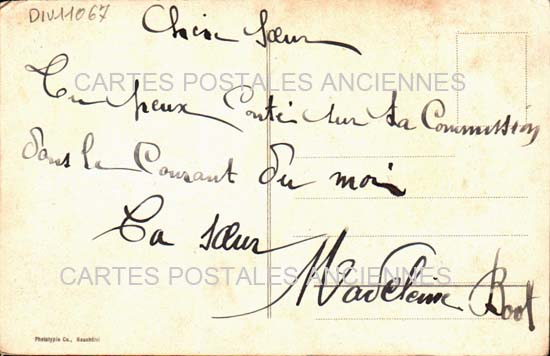 DIV11067
Chère Sœur
CARTES POSTALES ANCIENNES
Tu peux Conté sur ta Commission
dans le Courant du mois
Ta sœur
CARTES POSTALES ANCIENNES
Madeleine Boot
Phototypie Co., Neuchâtel